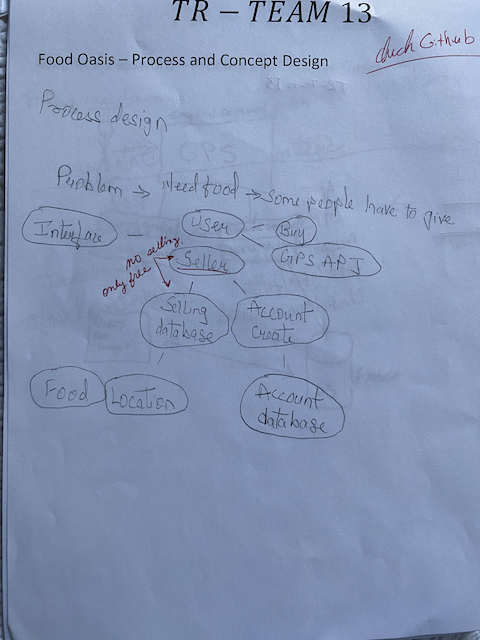 TR – TEAM 13
check Github
Food Oasis – Process and Concept Design
Process design
Problem → Need food → some people have to give
Interface – User – Buy
GPS API
no selling,
only free
Seller
Selling
database
Account
create
Food
Location
Account
database